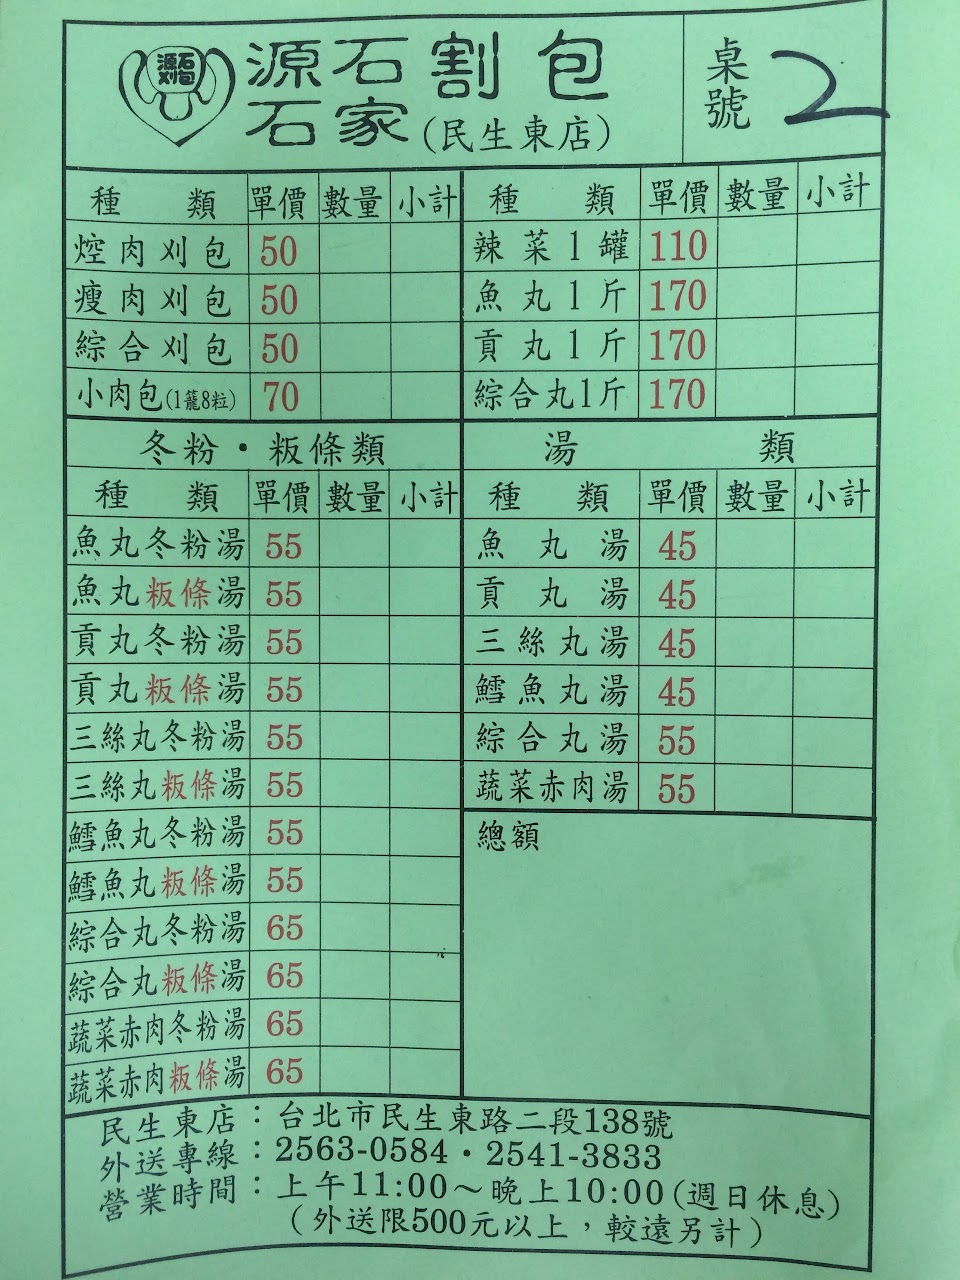 源石
刈包
源石割包
石家(民生東店)
桌號 2
種類 單價 數量 小計
焢肉刈包 50
瘦肉刈包 50
綜合刈包 50
小肉包(1籠8粒) 70
種類 單價 數量 小計
辣菜1罐 110
魚丸1斤 170
貢丸1斤 170
綜合丸1斤 170
冬粉・粄條類
種類 單價 數量 小計
魚丸冬粉湯 55
魚丸粄條湯 55
貢丸冬粉湯 55
貢丸粄條湯 55
三絲丸冬粉湯 55
三絲丸粄條湯 55
鱈魚丸冬粉湯 55
鱈魚丸粄條湯 55
綜合丸冬粉湯 65
綜合丸粄條湯 65
蔬菜赤肉冬粉湯 65
蔬菜赤肉粄條湯 65
湯類
種類 單價 數量 小計
魚丸湯 45
貢丸湯 45
三絲丸湯 45
鱈魚丸湯 45
綜合丸湯 55
蔬菜赤肉湯 55
總額
民生東店：台北市民生東路二段138號
外送專線：2563-0584・2541-3833
營業時間：上午11:00～晚上10:00(週日休息)
(外送限500元以上，較遠另計)